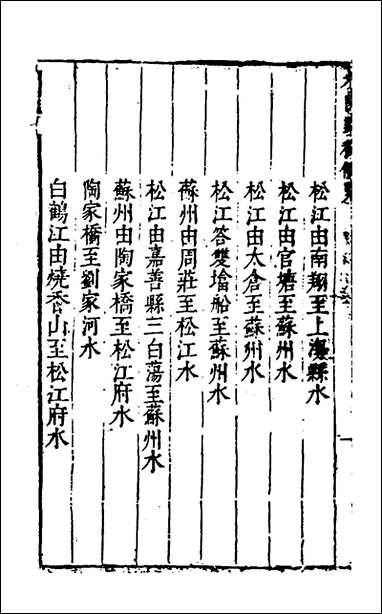 松江由南翔至上海縣水
松江由官塘至蘇州水
松江由太倉至蘇州水
松江答雙塔船至蘇州水
蘇州由周莊至松江水
松江由嘉善縣三白蕩至蘇州水
蘇州由陶家橋至松江府水
陶家橋至劉家河水
白鶴江由燒香山至松江府水